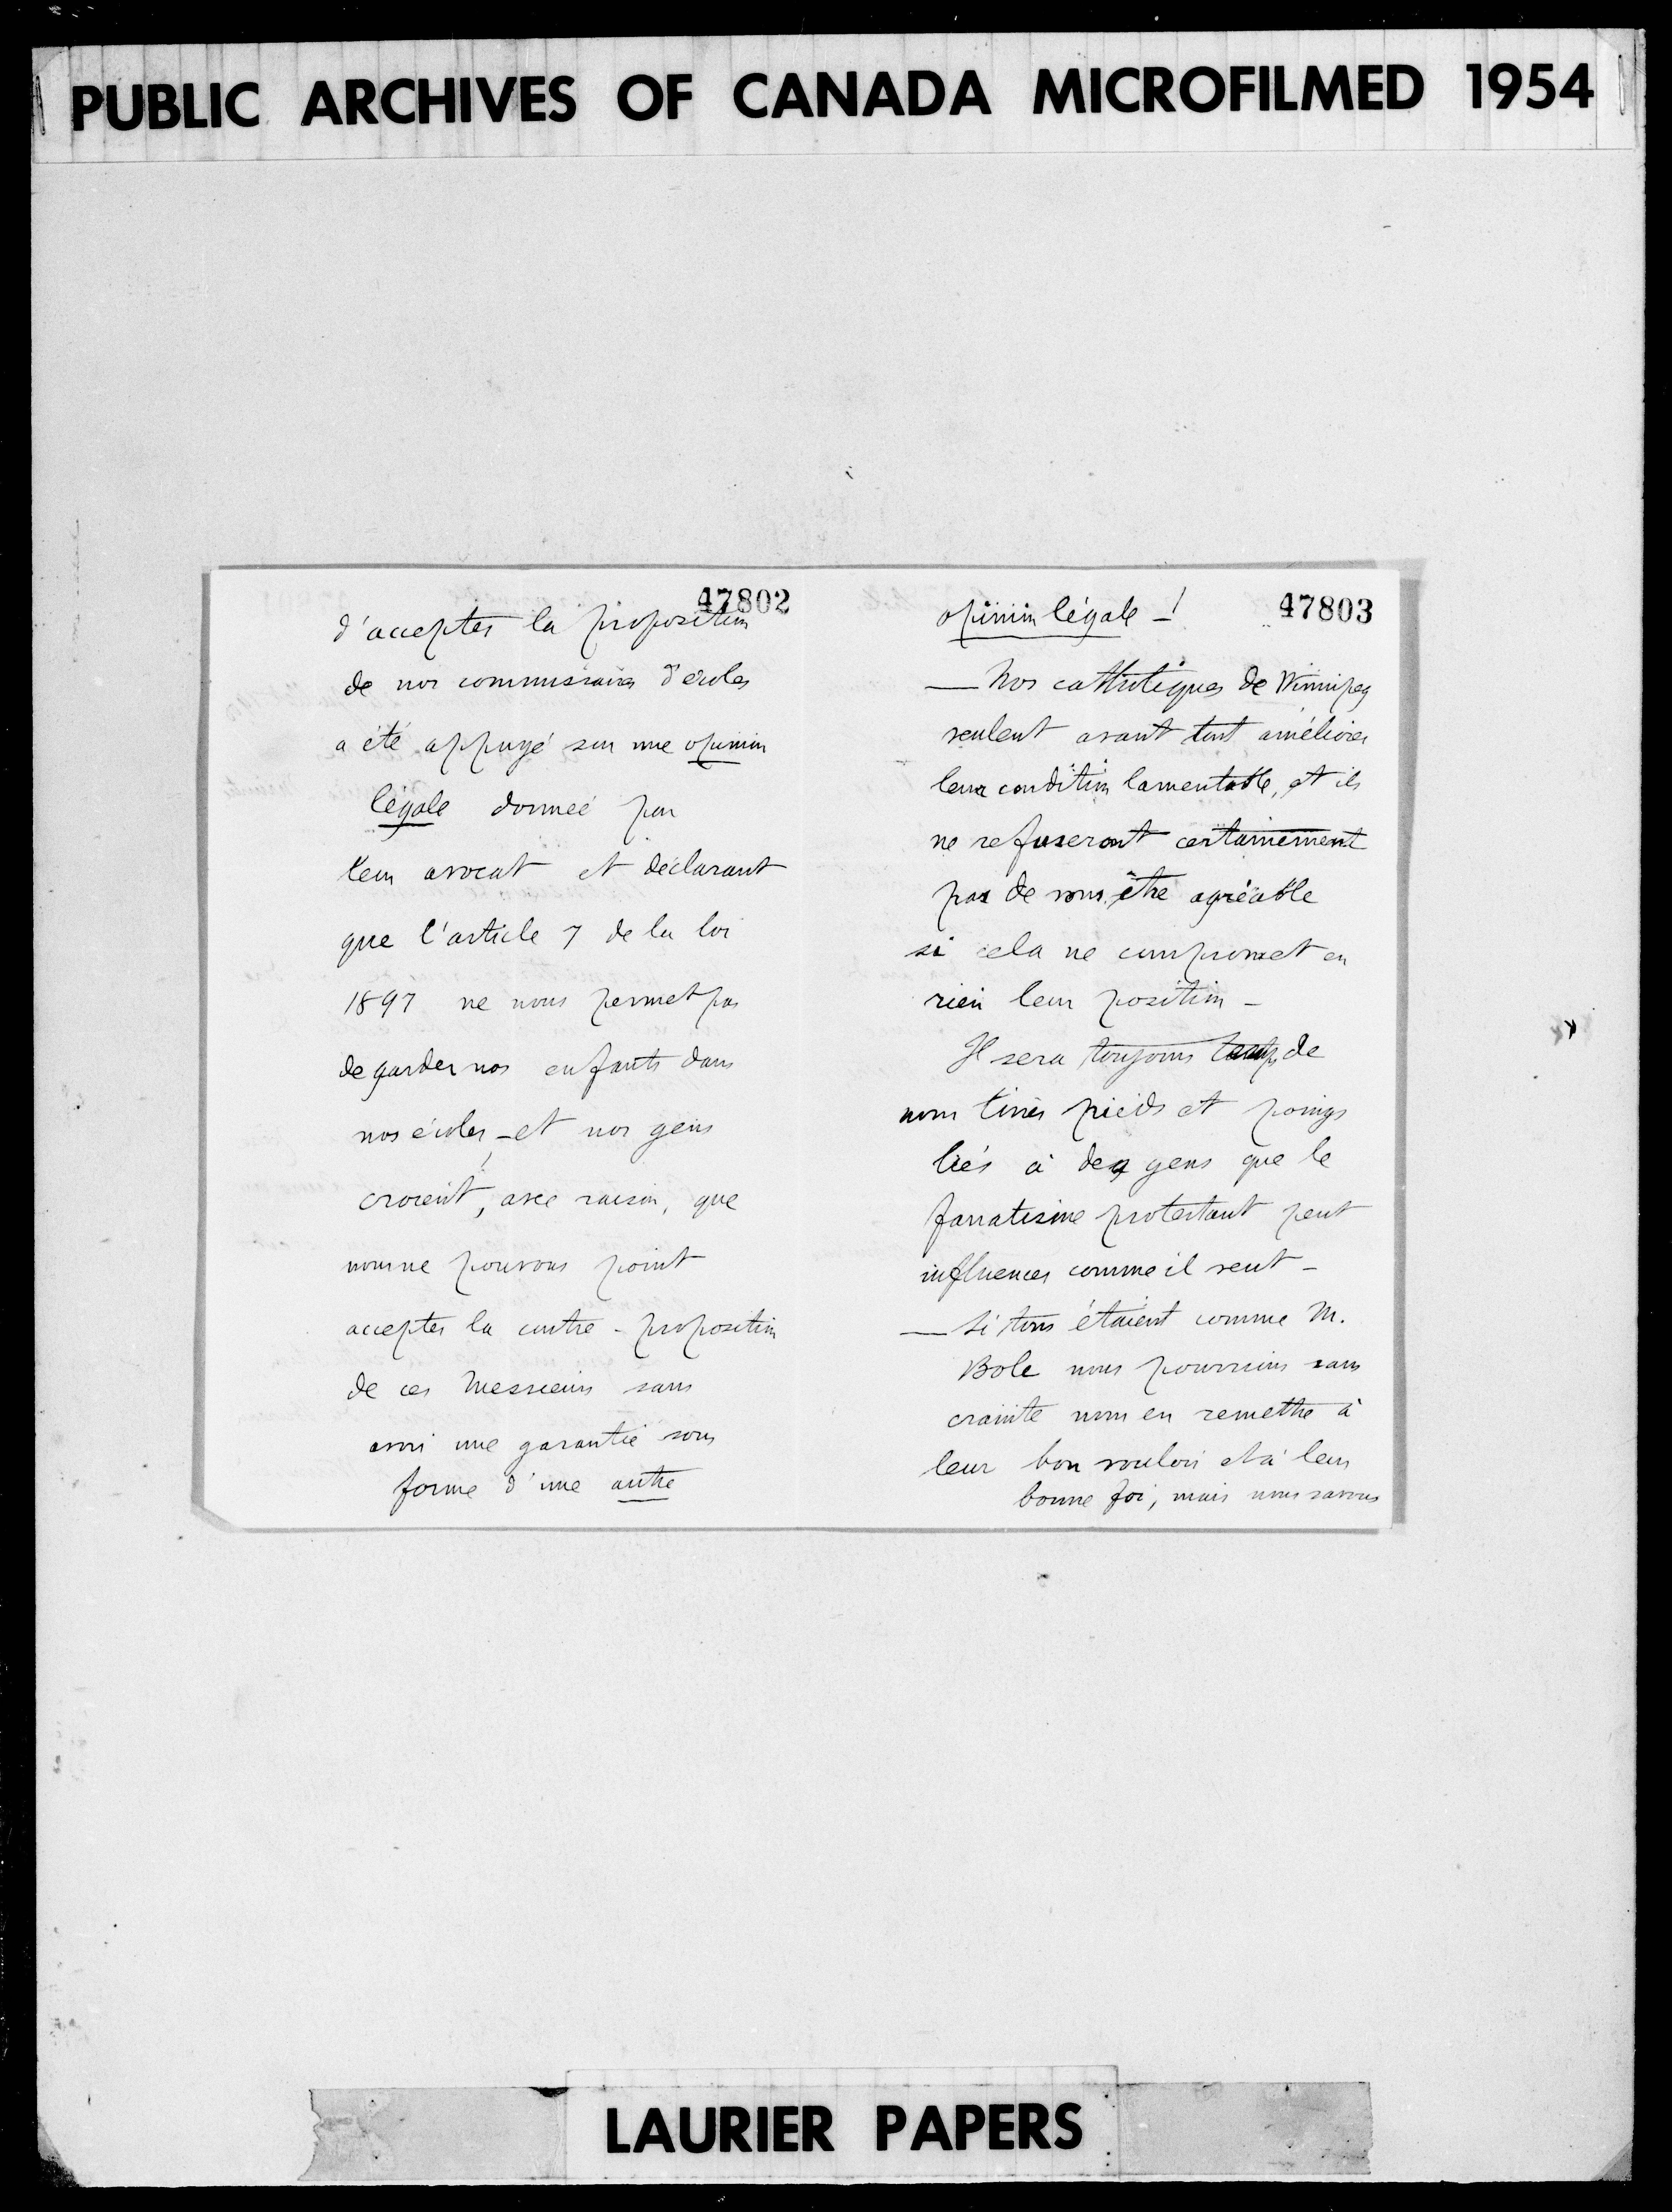 PUBLIC ARCHIVES OF CANADA MICROFILMED 1954
47802
d'accepter la proposition
de nos commissaires d'écoles
a été appuyé sur une opinion
légale donnée par
leur avocat et déclarant
que l'article 7 de la loi
1897 ne nous permet pas
de garder nos enfants dans
nos écoles, – et nos gens
croient, avec raison, que
nous ne pouvons point
accepter la contre-proposition
de ces Messieurs sans
avoir une garantie sous
forme d'une autre
47803
opinion légale – !
— Nos catholiques de Winnipeg
veulent avant tout améliorer
leur condition lamentable, et ils
ne refuseront certainement
pas de vous être agréable
si cela ne compromet en
rien leur position –
Il sera toujours temps de
nous livrer pieds et poings
liés à des gens que le
fanatisme protestant peut
influencer comme il veut –
— Si tous étaient comme M.
Bole nous pourrions sans
crainte nous en remettre à
leur bon vouloir et à leur
bonne foi, mais nous savons
LAURIER PAPERS